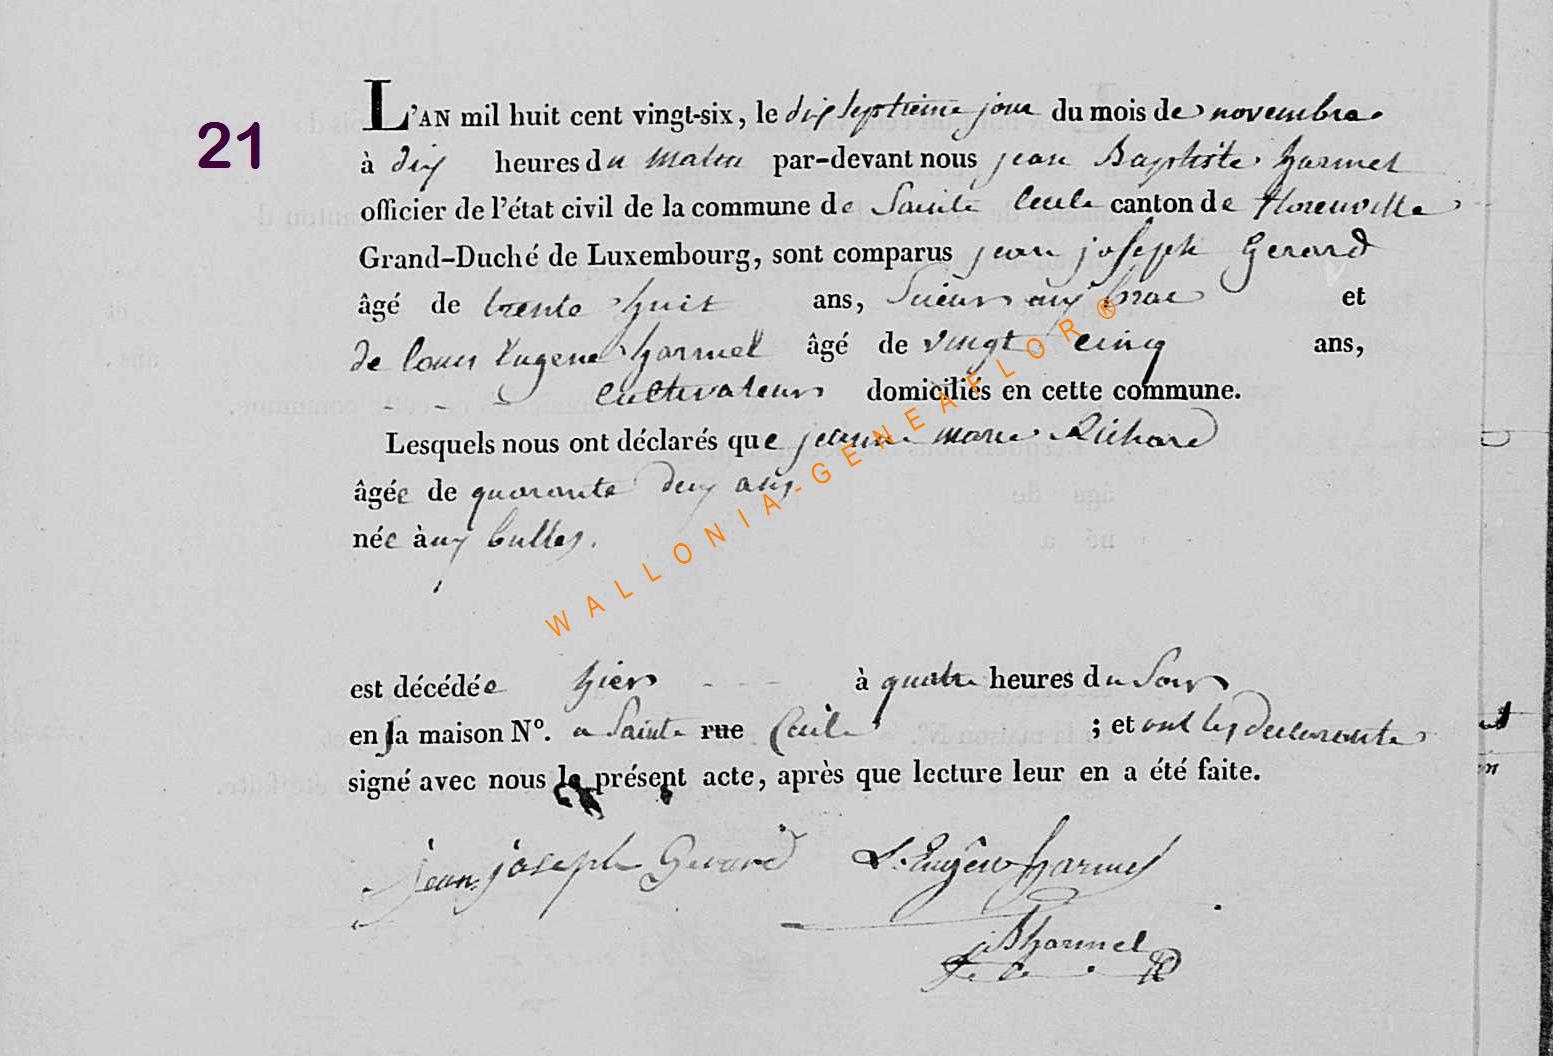 21
L'AN mil huit cent vingt-six, le dix septieme jour du mois de novembre
à dix heures du matin par-devant nous jean Baptiste harmel
officier de l'état civil de la commune de Sainte Cecile canton de florenville
Grand-Duché de Luxembourg, sont comparus jean joseph Gerard
âgé de trente huit ans, Sieur et
de louis Eugene harmel âgé de vingt cinq ans,
- - - cultivateurs domiciliés en cette commune.
Lesquels nous ont déclarés que jeanne marie Richard
âgée de quarante deux ans
née à aux bulles.
est décédée hier - - - à quatre heures du Soir
en Sa maison N°. a Sainte rue Cecile ; et ont les declarants
signé avec nous le présent acte, après que lecture leur en a été faite.
jean joseph Gerard L. Eugêne harmel
jBharmel
WALLONIA-GENEAFLOR®